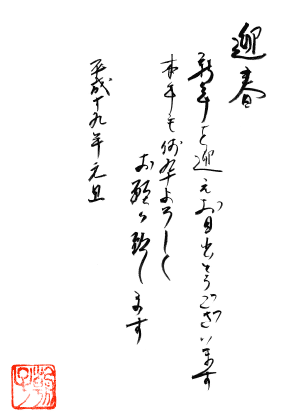 迎春
新年を迎えお目出とうございます
本年も何卒よろしく
お願い致します
平成十九年元旦